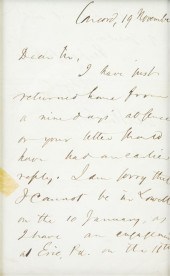 Concord, 19 November
Dear Sir,
I have just
returned home from
a nine days absence
or your letter should
have had an earlier
reply. I am sorry that
I cannot be in Lowell
on the 10 January, as
I have an engagement
at Erie, Pa. on the 11th